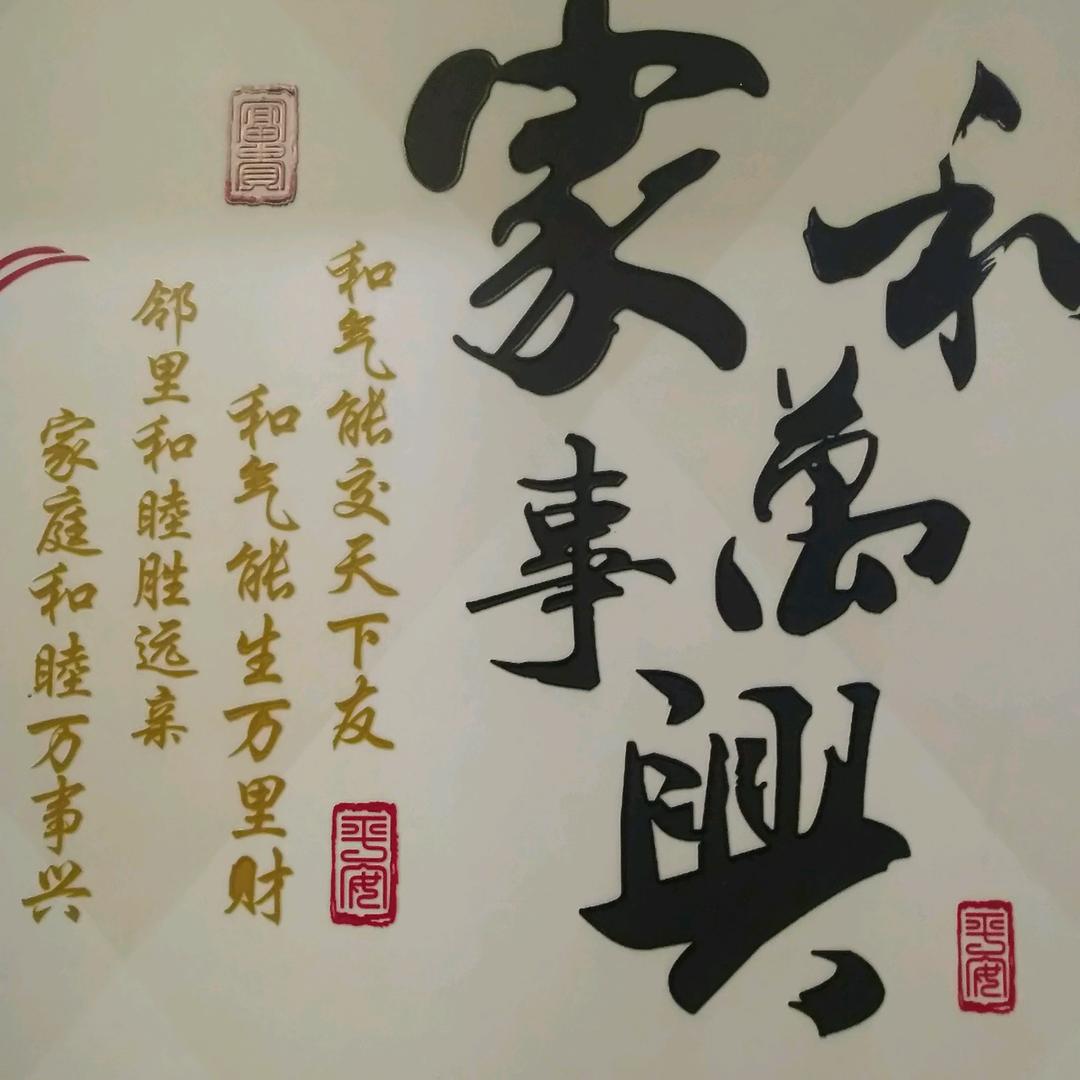 家和萬事興
平安
和气能交天下友
平安
富貴
和气能生万里财
邻里和睦胜远亲
家庭和睦万事兴